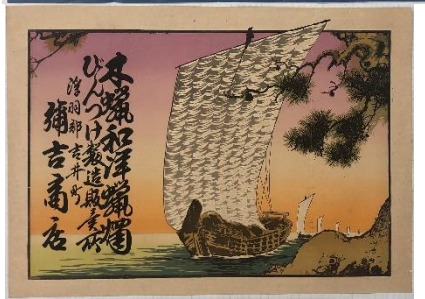 木蠟和洋蠟燭
びんつけ製造販賣所
浮羽郡吉井町
彌吉商店